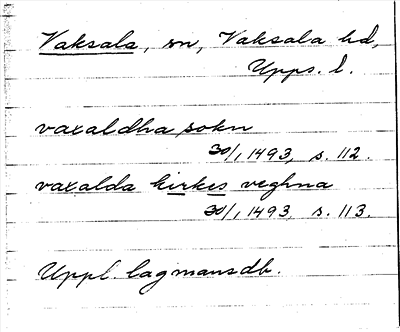 Vaksala, sn, Vaksala hd,
Upps. l.
vaxaldha sokn
30/1 1493, s. 112.
vaxalda kirkes veghna
30/1 1493, s. 113.
Uppl. lagmansdb.